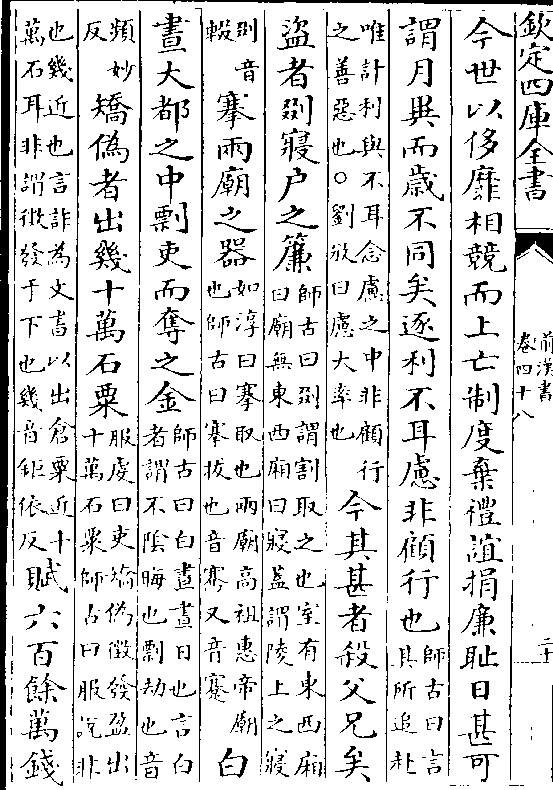 欽定四庫全書
前漢書
卷四十八
二十
今世以侈靡相競而上亡制度棄禮誼捐廉耻日甚可
謂月異而歲不同矣逐利不耳慮非顧行也師古曰言其所追赴
唯計利與不耳念慮之中非顧行之善惡也○劉攽曰慮大率也今其甚者殺父兄矣
盜者剟寢户之簾師古曰剟謂割取之也室有東西廂曰廟無東西廂曰寢蓋謂陵上之寢
剟音輟搴兩廟之器如淳曰搴取也兩廟高祖惠帝廟也師古曰搴拔也音騫又音蹇白
晝大都之中剽吏而奪之金師古曰白晝晝日也言白者謂不陰晦也剽劫也音
頻妙反矯偽者出幾十萬石粟服虔曰吏矯偽徵發盈出十萬石粟師古曰服說非
也幾近也言詐為文書以出倉粟近十萬石耳非謂徵發于下也幾音鉅依反賦六百餘萬錢